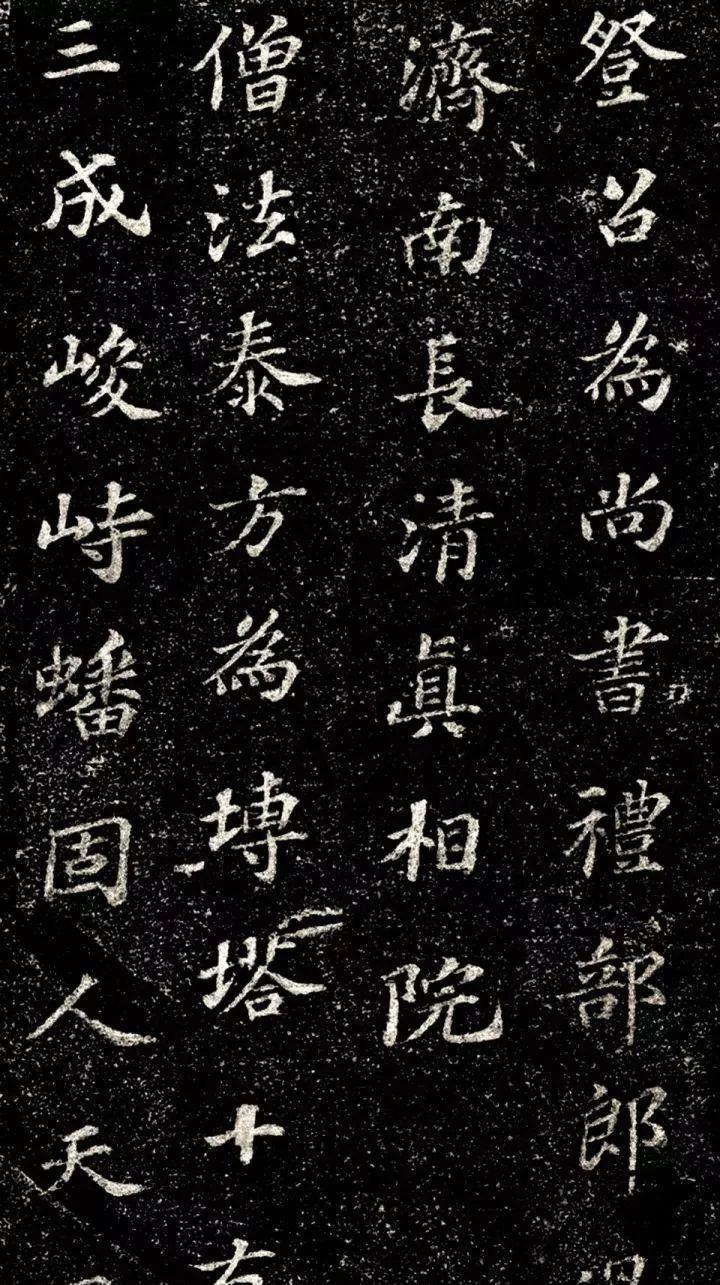 登召為尚書禮部郎
濟南長清真相院
僧法泰方為塼塔十有
三成峻峙蟠固人天